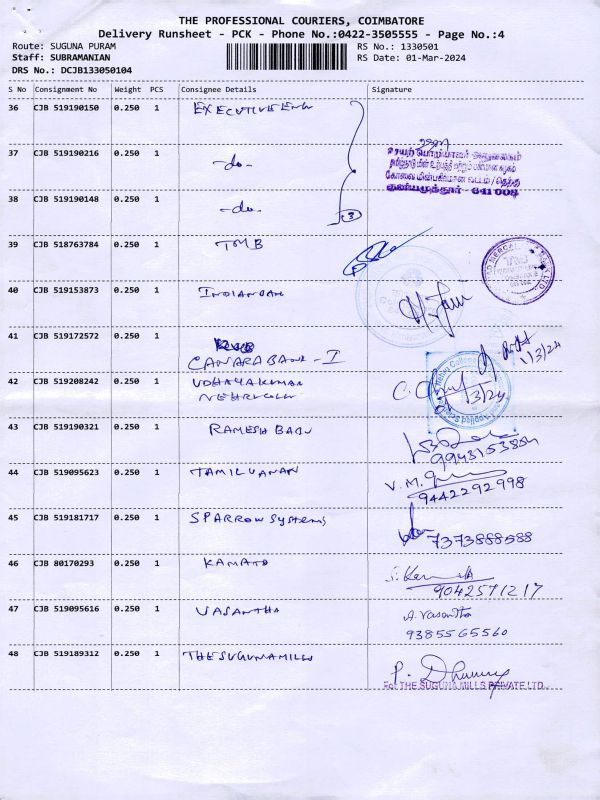 THE PROFESSIONAL COURIERS, COIMBATORE
Delivery Runsheet - PCK - Phone No.:0422-3505555 - Page No.:4
Route: SUGUNA PURAM RS No.: 1330501
Staff: SUBRAMANIAN RS Date: 01-Mar-2024
DRS No.: DCJB133050104
S No Consignment No Weight PCS Consignee Details Signature
36 CJB 519190150 0.250 1 EXECUTIVE ENG
37 CJB 519190216 0.250 1 -do-
உதவி செயற் பொறியாளர் அலுவலகம்
குனியமுத்தூர் - 641 008
38 CJB 519190148 0.250 1 -do- 3
39 CJB 518763784 0.250 1 TMB
40 CJB 519153873 0.250 1 INDIANBANK
41 CJB 519172572 0.250 1 CANARA BANK - I 1/3/24
42 CJB 519208242 0.250 1 UDHAYAKUMAR
NEHRU COLLEGE
43 CJB 519190321 0.250 1 RAMESH BABU
9943153854
44 CJB 519095623 0.250 1 TAMILVANAN V.M.
9442292998
45 CJB 519181717 0.250 1 SPARROW SYSTEMS
7373888588
46 CJB 80170293 0.250 1 KAMATO
9042571217
47 CJB 519095616 0.250 1 VASANTHA A. Vasantha
9385565560
48 CJB 519189312 0.250 1 THE SUGUNA MILLS P.
For THE SUGUNA MILLS PRIVATE LTD.,